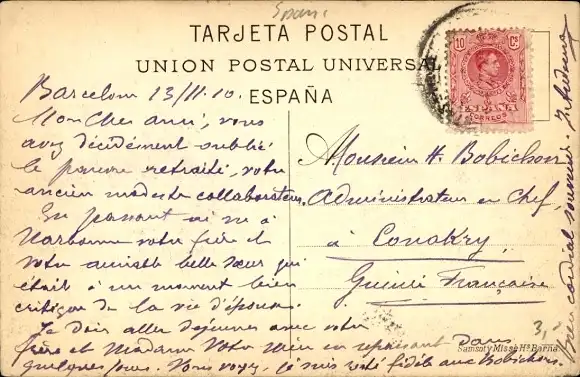 Spain
TARJETA POSTAL
UNION POSTAL UNIVERSAL
ESPAÑA
10 Cs
ESPAÑA
CORREOS
Barcelone 13/11.10.
Mon Cher ami, vous
avez décidément oublié
le pauvre retraité, votre
ancien modeste collaborateur.
En passant ici vu à
Narbonne votre frère et
votre aimable belle sœur qui
était à un moment bien
critique de la vie d'épouse.
Je dois aller déjeuner avec votre
frère et Madame Votre Mère en repassant dans
quelques jours. Vous voyez, je suis resté fidèle aux Bobichon.
Bien cordial souvenir.
Monsieur H. Bobichon
Administrateur en Chef,
à Conakry,
Guinée Française
Samsot y Missé Hs Barna